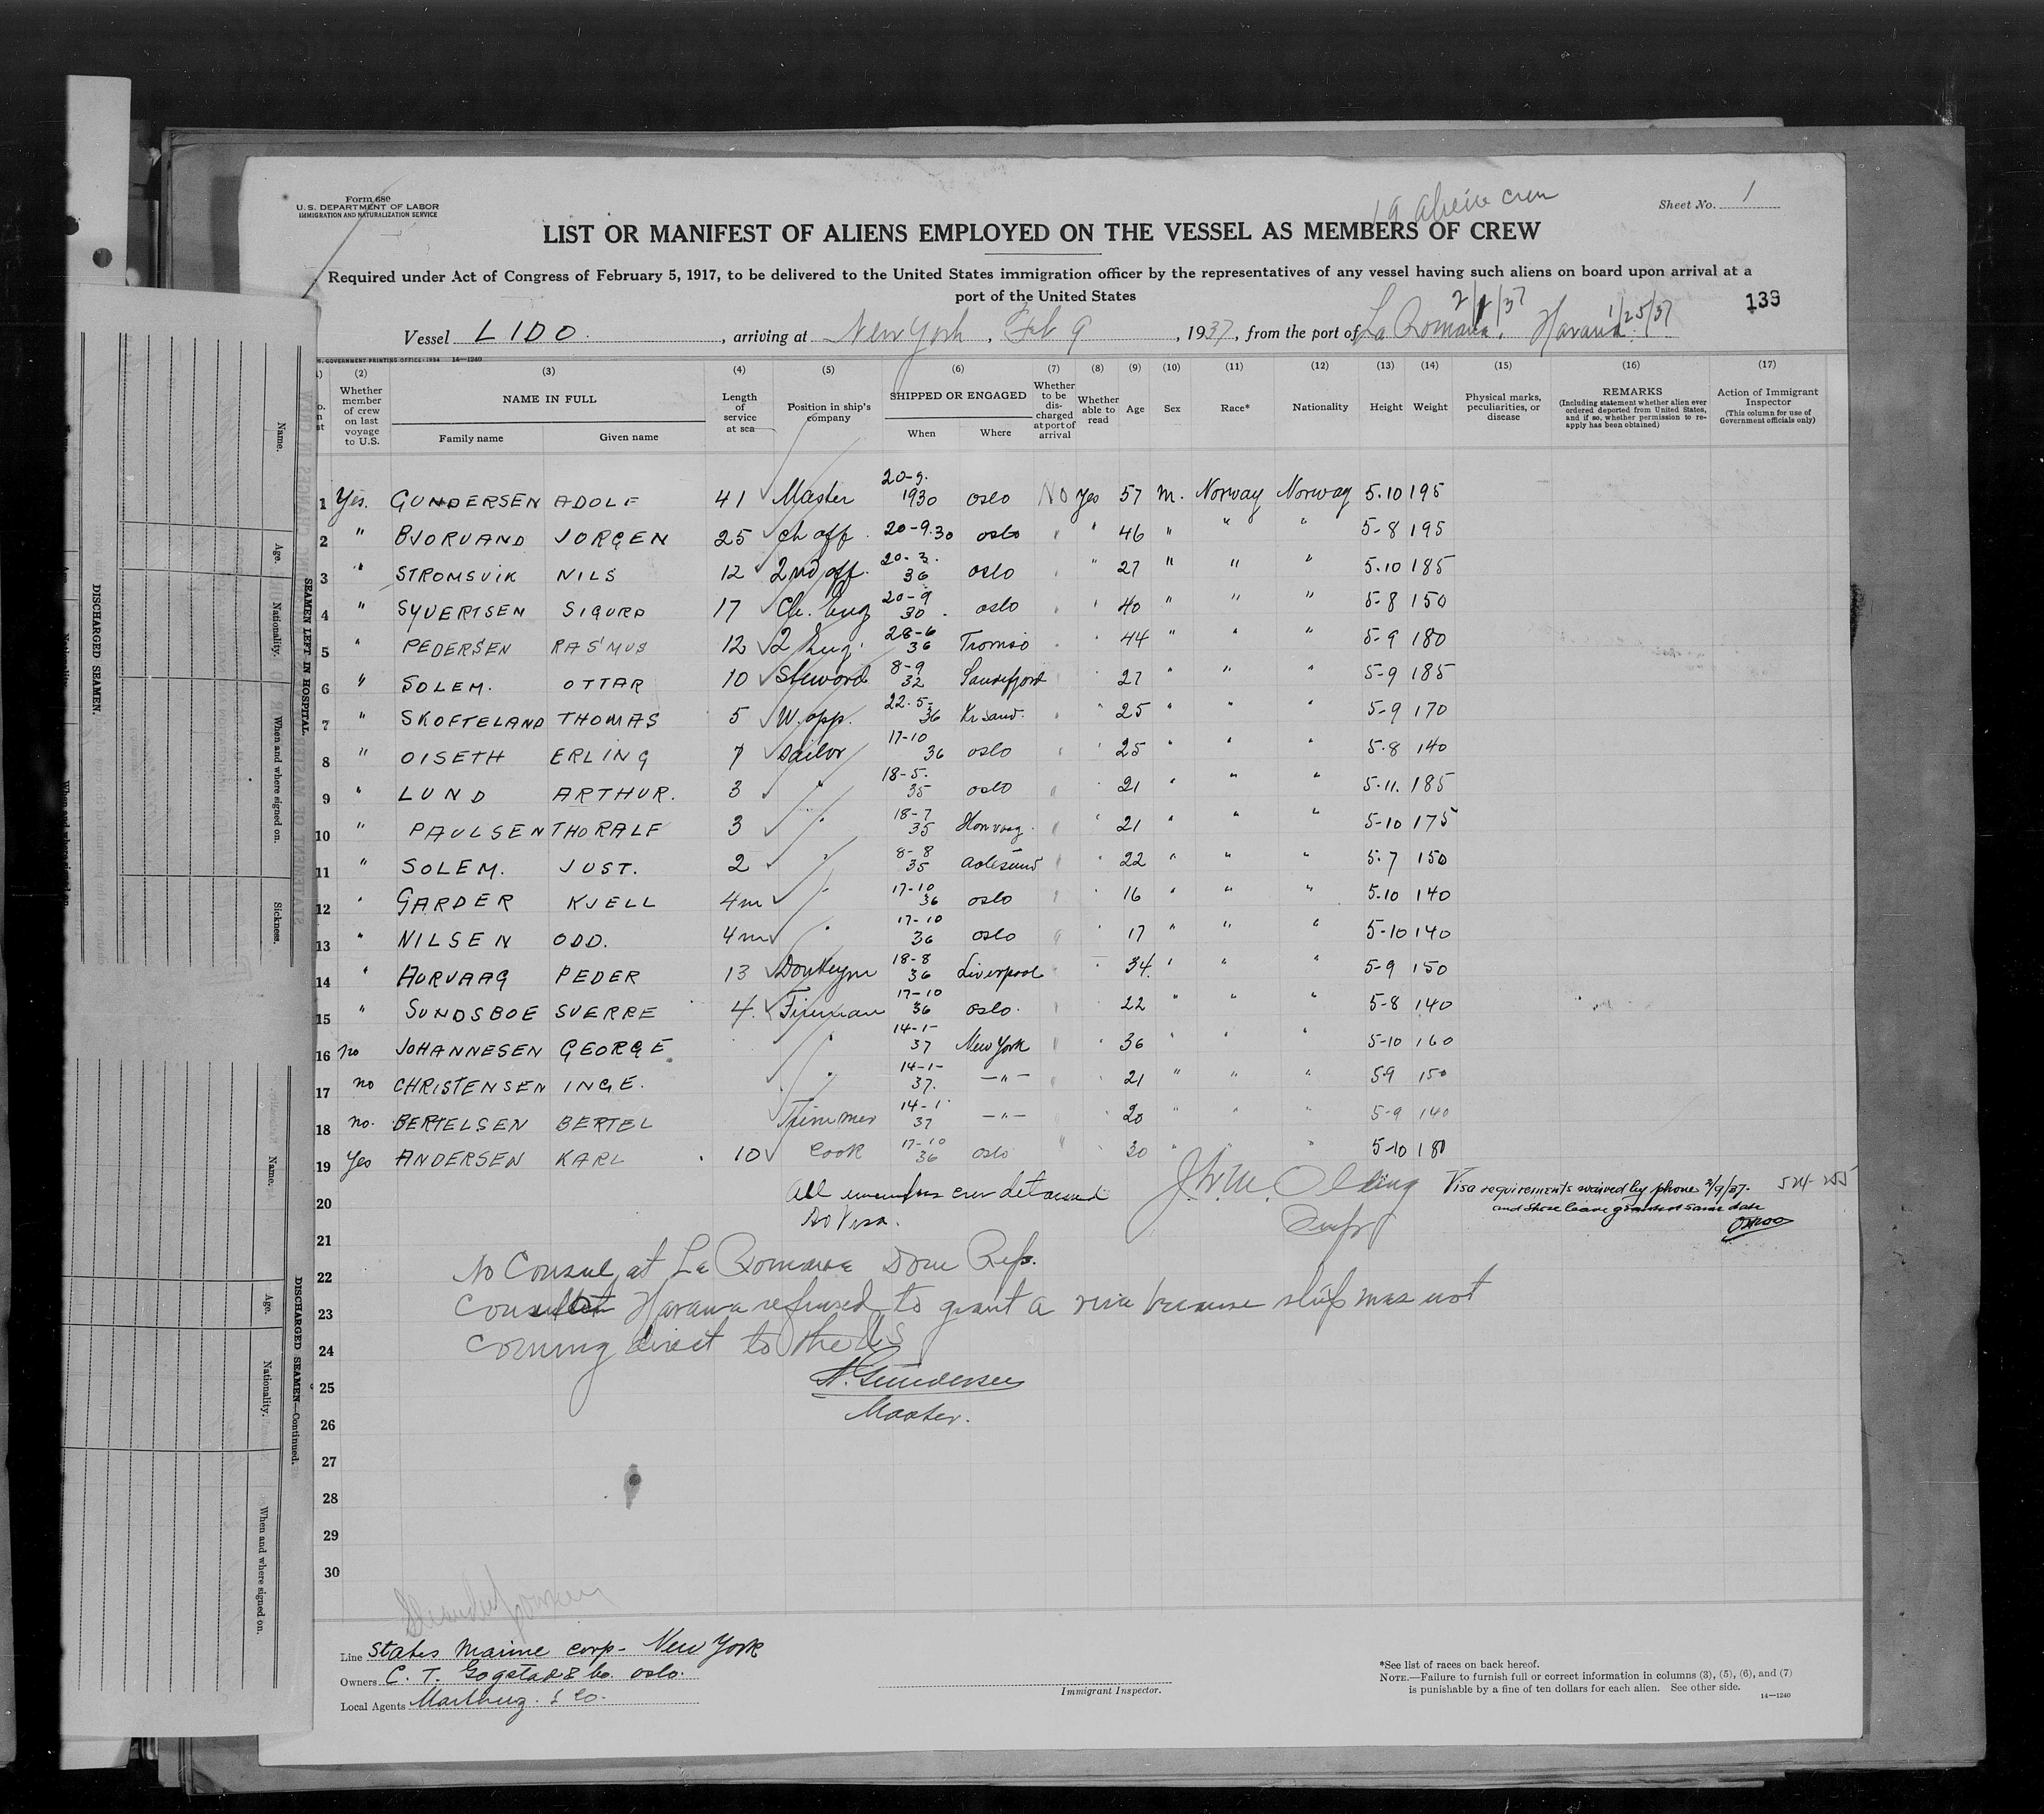 Form 680
U.S. DEPARTMENT OF LABOR
IMMIGRATION AND NATURALIZATION SERVICE
19 aliens crew
Sheet No. 1
LIST OR MANIFEST OF ALIENS EMPLOYED ON THE VESSEL AS MEMBERS OF CREW
Required under Act of Congress of February 5, 1917, to be delivered to the United States immigration officer by the representatives of any vessel having such aliens on board upon arrival at a
port of the United States
139
Vessel LIDO. , arriving at New York , Feb 9 , 1937, from the port of La Romana. 2/1/37 Havana. 1/25/37
GOVERNMENT PRINTING OFFICE: 1934 14—1240
(2) (3) (4) (5) (6) (7) (8) (9) (10) (11) (12) (13) (14) (15) (16) (17)
Whether member of crew on last voyage to U.S. NAME IN FULL Family name Given name Length of service at sea Position in ship's company SHIPPED OR ENGAGED When Where Whether to be discharged at port of arrival Whether able to read Age Sex Race* Nationality Height Weight Physical marks, peculiarities, or disease REMARKS (Including statement whether alien ever ordered deported from United States, and if so, whether permission to reapply has been obtained) Action of Immigrant Inspector (This column for use of Government officials only)
1 Yes. GUNDERSEN ADOLF 41 Master 20-9. 1930 oslo NO Yes 57 m. Norway Norway 5.10 195
2 " BJORVAND JORGEN 25 Ch off. 20-9.30 oslo " " 46 " " " 5-8 195
3 " STROMSVIK NILS 12 2nd off. 20-3. 36 oslo " " 27 " " " 5.10 185
4 " SYVERTSEN SIGURD 17 Ch. Eng 20-9 30. oslo " " 40 " " " 5-8 150
5 " PEDERSEN RASMUS 12 2 Eng. 28-6 36 Tromsö " " 44 " " " 5-9 180
6 " SOLEM. OTTAR 10 Steword 8-9 32 Sandefjord " " 27 " " " 5-9 185
7 " SKOFTELAND THOMAS 5 W.opp. 22.5- 36 Kr Sand. " " 25 " " " 5-9 170
8 " OISETH ERLING 7 Sailor 17-10 36 oslo " " 25 " " " 5.8 140
9 " LUND ARTHUR. 3 " 18-5. 35 oslo " " 21 " " " 5.11. 185
10 " PAULSEN THORALF 3 " 18-7 35 Honvaag. " " 21 " " " 5-10 175
11 " SOLEM. JUST. 2 " 8-8 35 Aalesund " " 22 " " " 5.7 150
12 " GARDER KJELL 4m " 17-10 36 oslo " " 16 " " " 5.10 140
13 " NILSEN ODD. 4m " 17-10 36 oslo " " 17 " " " 5-10 140
14 " AURVAAG PEDER 13 Donkeym 18-8 36 Liverpool " " 34. " " " 5-9 150
15 " SUNDSBOE SVERRE 4. Fireman 17-10 36 oslo. " " 22 " " " 5-8 140
16 no JOHANNESEN GEORGE. " 14-1- 37 New York " " 36 " " " 5-10 160
17 no CHRISTENSEN INGE. " 14-1- 37. —"— " " 21 " " " 5.9 150
18 no. BERTELSEN BERTEL Trimmer 14-1- 37 —"— " " 20 " " " 5-9 140
19 Yes ANDERSEN KARL 10 Cook 17-10 36 oslo " " 30 " " " 5-10 180
20 All members crew detained
No Visa.
Visa requirements waived by phone 2/9/37.
and shore leave granted same date
21
22 No Consul at La Romana Dom Rep.
23 Consul at Havana refused to grant a visa because ship was not
24 coming direct to the U S
25 A. Gundersen
26 Master.
27
28
29
30
Line States Marine Corp- New York
Owners C. T. Gogstad & Co. oslo.
Local Agents & Co.
Immigrant Inspector.
*See list of races on back hereof.
NOTE.—Failure to furnish full or correct information in columns (3), (5), (6), and (7)
is punishable by a fine of ten dollars for each alien. See other side.
14—1240
SEAMEN LEFT IN HOSPITAL
Name. Age. Nationality. When and where signed on. Sickness.
DISCHARGED SEAMEN.
DISCHARGED SEAMEN—Continued.
Name. Age. Nationality. When and where signed on.